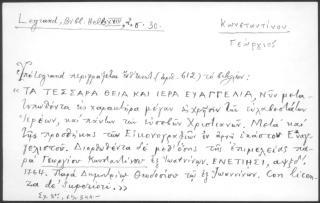 Legrand, Bibl. Hell. XVIII, 2, σ. 30.
Κωνσταντίνου
Γεώργιος
Ὑπὸ Legrand περιγράφεται (ἀρ. 612) τὸ βιβλίον:
« ΤΑ ΤΕΣΣΑΡΑ ΘΕΙΑ ΚΑΙ ΙΕΡΑ ΕΥΑΓΓΕΛΙΑ, Νῦν μετα-
τυπωθέντα εἰς χαρακτῆρα μέγαν εἰς χρῆσιν τῶν εὐλαβεστάτων
Ἱερέων, καὶ πάντων τῶν εὐσεβῶν Χριστιανῶν. Μετὰ καὶ
τῆς προσθήκης τῶν Εἰκονογραφιῶν ἐν ἀρχῇ ἑκάστου Εὐαγ-
γελιστοῦ. Διορθωθέντα δὲ μεθ' ὅσης τῆς ἐπιμελείας πα-
ρὰ Γεωργίου Κωνσταντίνου ἐξ Ἰωαννίνων. ΕΝΕΤΙΗΣΙ, αψξδ'.
1764. Παρὰ Δημητρίῳ Θεοδοσίου τῷ ἐξ Ἰωαννίνων. Con licen-
za de' Superiori. »